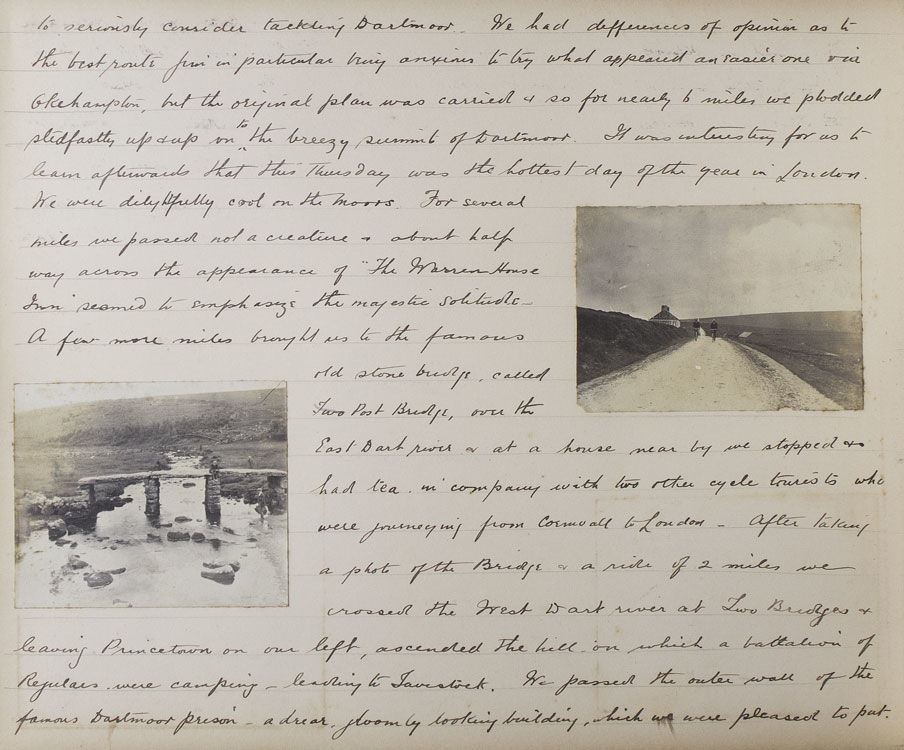 to seriously consider tackling Dartmoor. We had differences of opinion as to
the best route Jim in particular being anxious to try what appeared an easier one via
Okehampton, but the original plan was carried & so for nearly 6 miles we plodded
stedfastly up & up on to the breezy summit of Dartmoor. It was interesting for us to
learn afterwards that this Thursday was the hottest day of the year in London.
We were delightfully cool on the moors. For several
miles we passed not a creature & about half
way across the appearance of "The Warren House
Inn" seemed to emphasize the majestic solitude –
A few more miles brought us to the famous
old stone bridge, called
Two Post Bridge, over the
East Dart river & at a house near by we stopped &
had tea in company with two other cycle tourists who
were journeying from Cornwall to London – After taking
a photo of the Bridge & a ride of 2 miles we
crossed the West Dart river at Two Bridges &
leaving Princetown on our left, ascended the hill on which a battalion of
Regulars were camping – leading to Tavistock. We passed the outer wall of the
famous Dartmoor prison – a drear, gloomly looking building, which we were pleased to put.